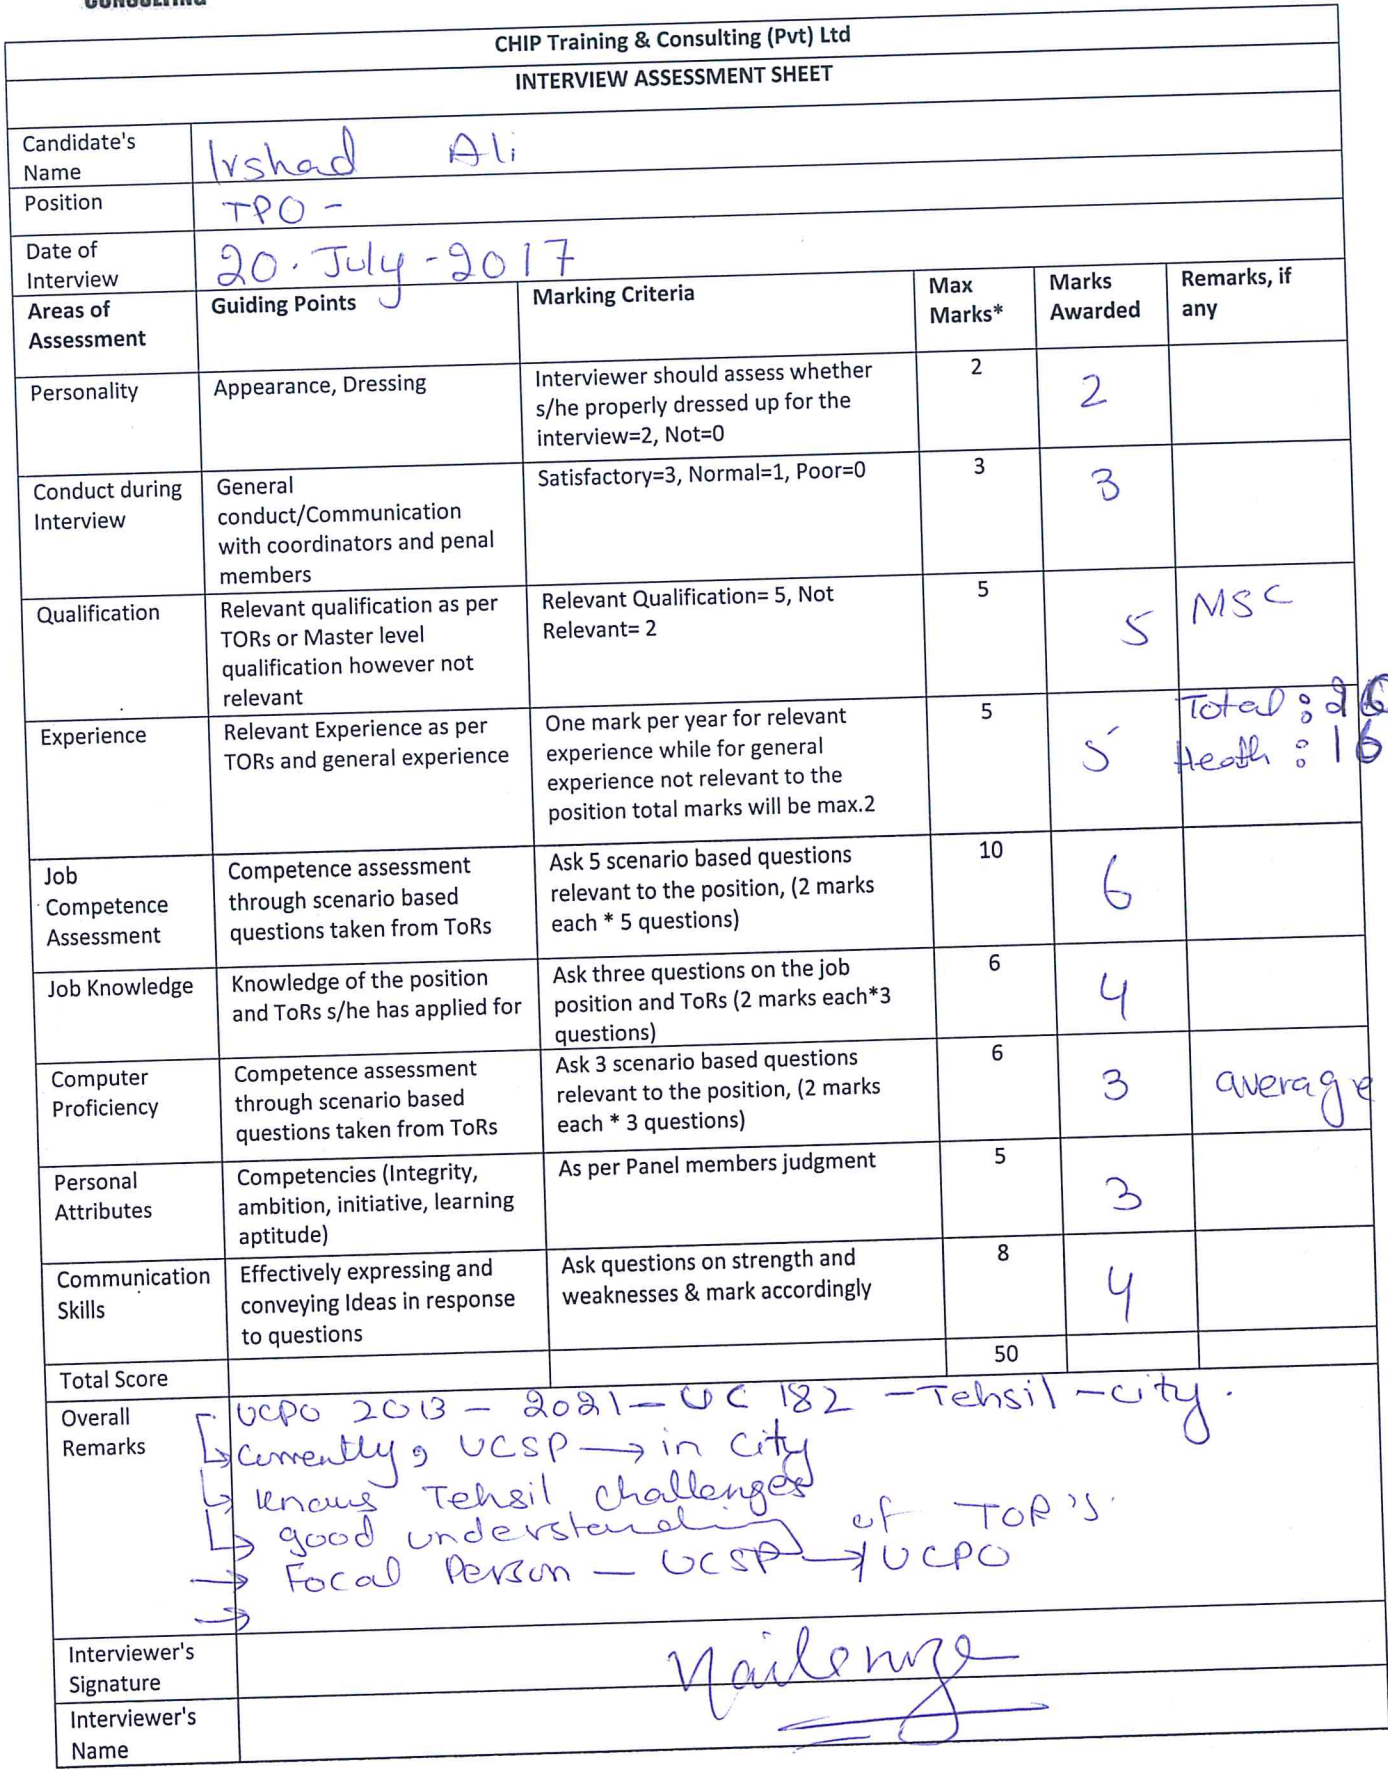 CONSULTING
CHIP Training & Consulting (Pvt) Ltd
INTERVIEW ASSESSMENT SHEET
Candidate's
Name
Irshad Ali
Position
TPO -
Date of
Interview
20. July - 2017
Areas of
Assessment
Guiding Points
Marking Criteria
Max
Marks*
Marks
Awarded
Remarks, if
any
Personality
Appearance, Dressing
Interviewer should assess whether
s/he properly dressed up for the
interview=2, Not=0
2
2
Conduct during
Interview
General
conduct/Communication
with coordinators and penal
members
Satisfactory=3, Normal=1, Poor=0
3
3
Qualification
Relevant qualification as per
TORs or Master level
qualification however not
relevant
Relevant Qualification= 5, Not
Relevant= 2
5
5
MSC
Experience
Relevant Experience as per
TORs and general experience
One mark per year for relevant
experience while for general
experience not relevant to the
position total marks will be max.2
5
5
Total : 26
Heath : 16
Job
Competence
Assessment
Competence assessment
through scenario based
questions taken from ToRs
Ask 5 scenario based questions
relevant to the position, (2 marks
each * 5 questions)
10
6
Job Knowledge
Knowledge of the position
and ToRs s/he has applied for
Ask three questions on the job
position and ToRs (2 marks each*3
questions)
6
4
Computer
Proficiency
Competence assessment
through scenario based
questions taken from ToRs
Ask 3 scenario based questions
relevant to the position, (2 marks
each * 3 questions)
6
3
average
Personal
Attributes
Competencies (Integrity,
ambition, initiative, learning
aptitude)
As per Panel members judgment
5
3
Communication
Skills
Effectively expressing and
conveying Ideas in response
to questions
Ask questions on strength and
weaknesses & mark accordingly
8
4
Total Score
50
Overall
Remarks
UCPO 2013 - 2021 - UC 182 - Tehsil - city.
Currently, UCSP → in city
knows Tehsil challenges
good understanding of TOR's
→ Focal Person - UCSP → UCPO
→
Interviewer's
Signature
Interviewer's
Name